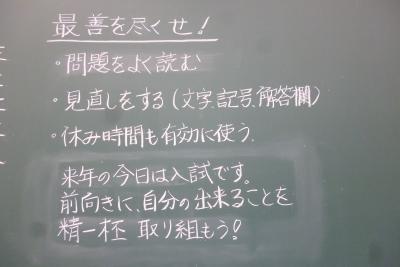 最善を尽くせ！
・問題をよく読む
・見直しをする(文字、記号、解答欄)
・休み時間も有効に使う。
来年の今日は入試です。
前向きに、自分の出来ることを
精一杯 取り組もう！